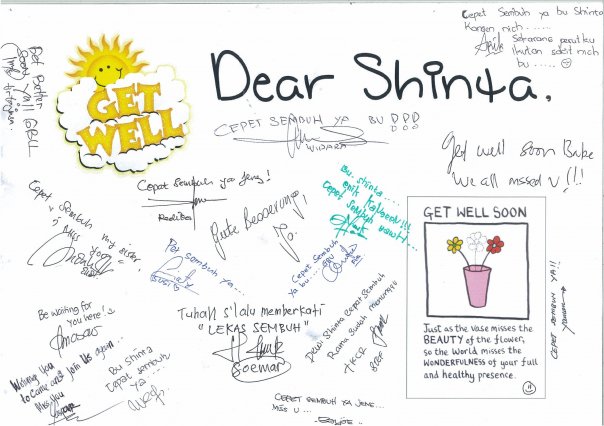 Dear Shinta,
GET
WELL
Cepet Sembuh ya bu Shinta
Kangen nich......
Sekarang perutku
ikutan sakit nich
bu.....
Get Better
Soon
CEPET SEMBUH YA BU
WIDARA
Get well soon
We all missed u!!!
Cepat Sembuh ya Jeng!
Radiba
Gute Besserung!
Bu Shinta....
Cepet Sembuh
Cepet Sembuh my sister,
Miss you
sembuh ya....
Cepet Sembuh
ya bu...
GET WELL SOON
Just as the vase misses the
BEAUTY of the flower,
so the World misses the
WONDERFULNESS of your full
and healthy presence.
CEPET SEMBUH YA!!
Be waiting for
you here!
Tuhan s'lalu memberkati
"LEKAS SEMBUH"
Soemar
Dear Shinta Cepat Sembuh
Rana sudah menunggu
Waiting you
to came and join us again...
Miss you
Bu Shinta
Cepat sembuh
ya...
CEPET SEMBUH YA JENG...
MIS U...